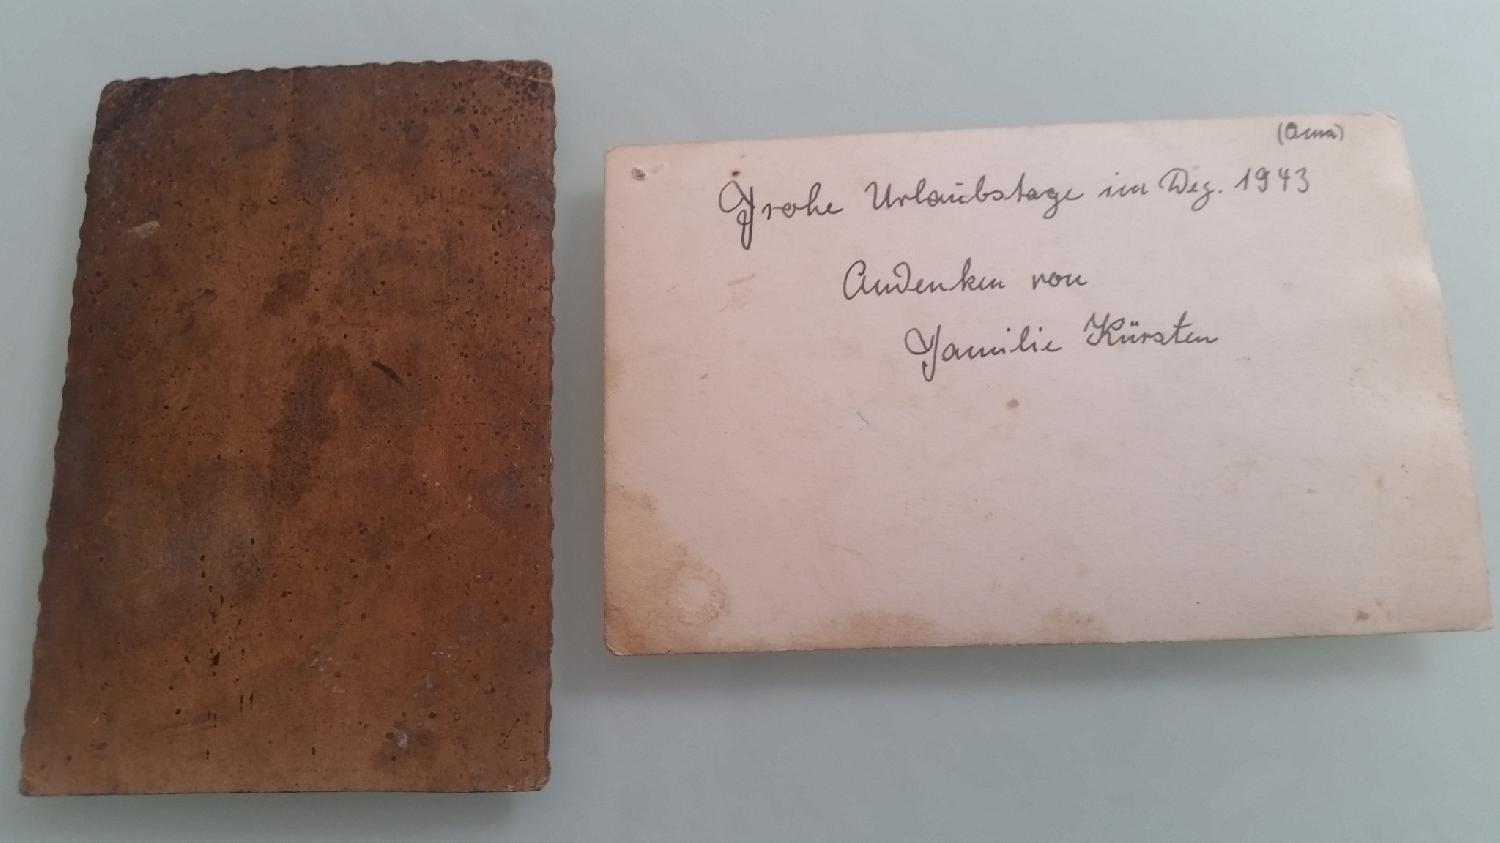 (Oma)
Frohe Urlaubstage im Dez. 1943
Andenken von
Familie Kürsten